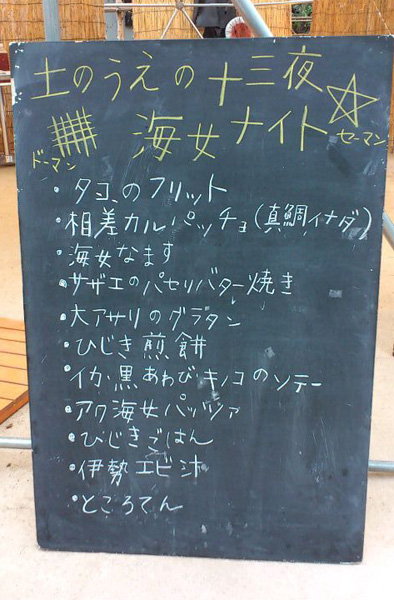 土のうえの十三夜
海女ナイト
ドーマン
セーマン
・タコのフリット
・相差カルパッチョ(真鯛イナダ)
・海女なます
・サザエのパセリバター焼き
・大アサリのグラタン
・ひじき煎餅
・イカ・黒あわび・キノコのソテー
・アク海女パッツァ
・ひじきごはん
・伊勢エビ汁
・ところてん